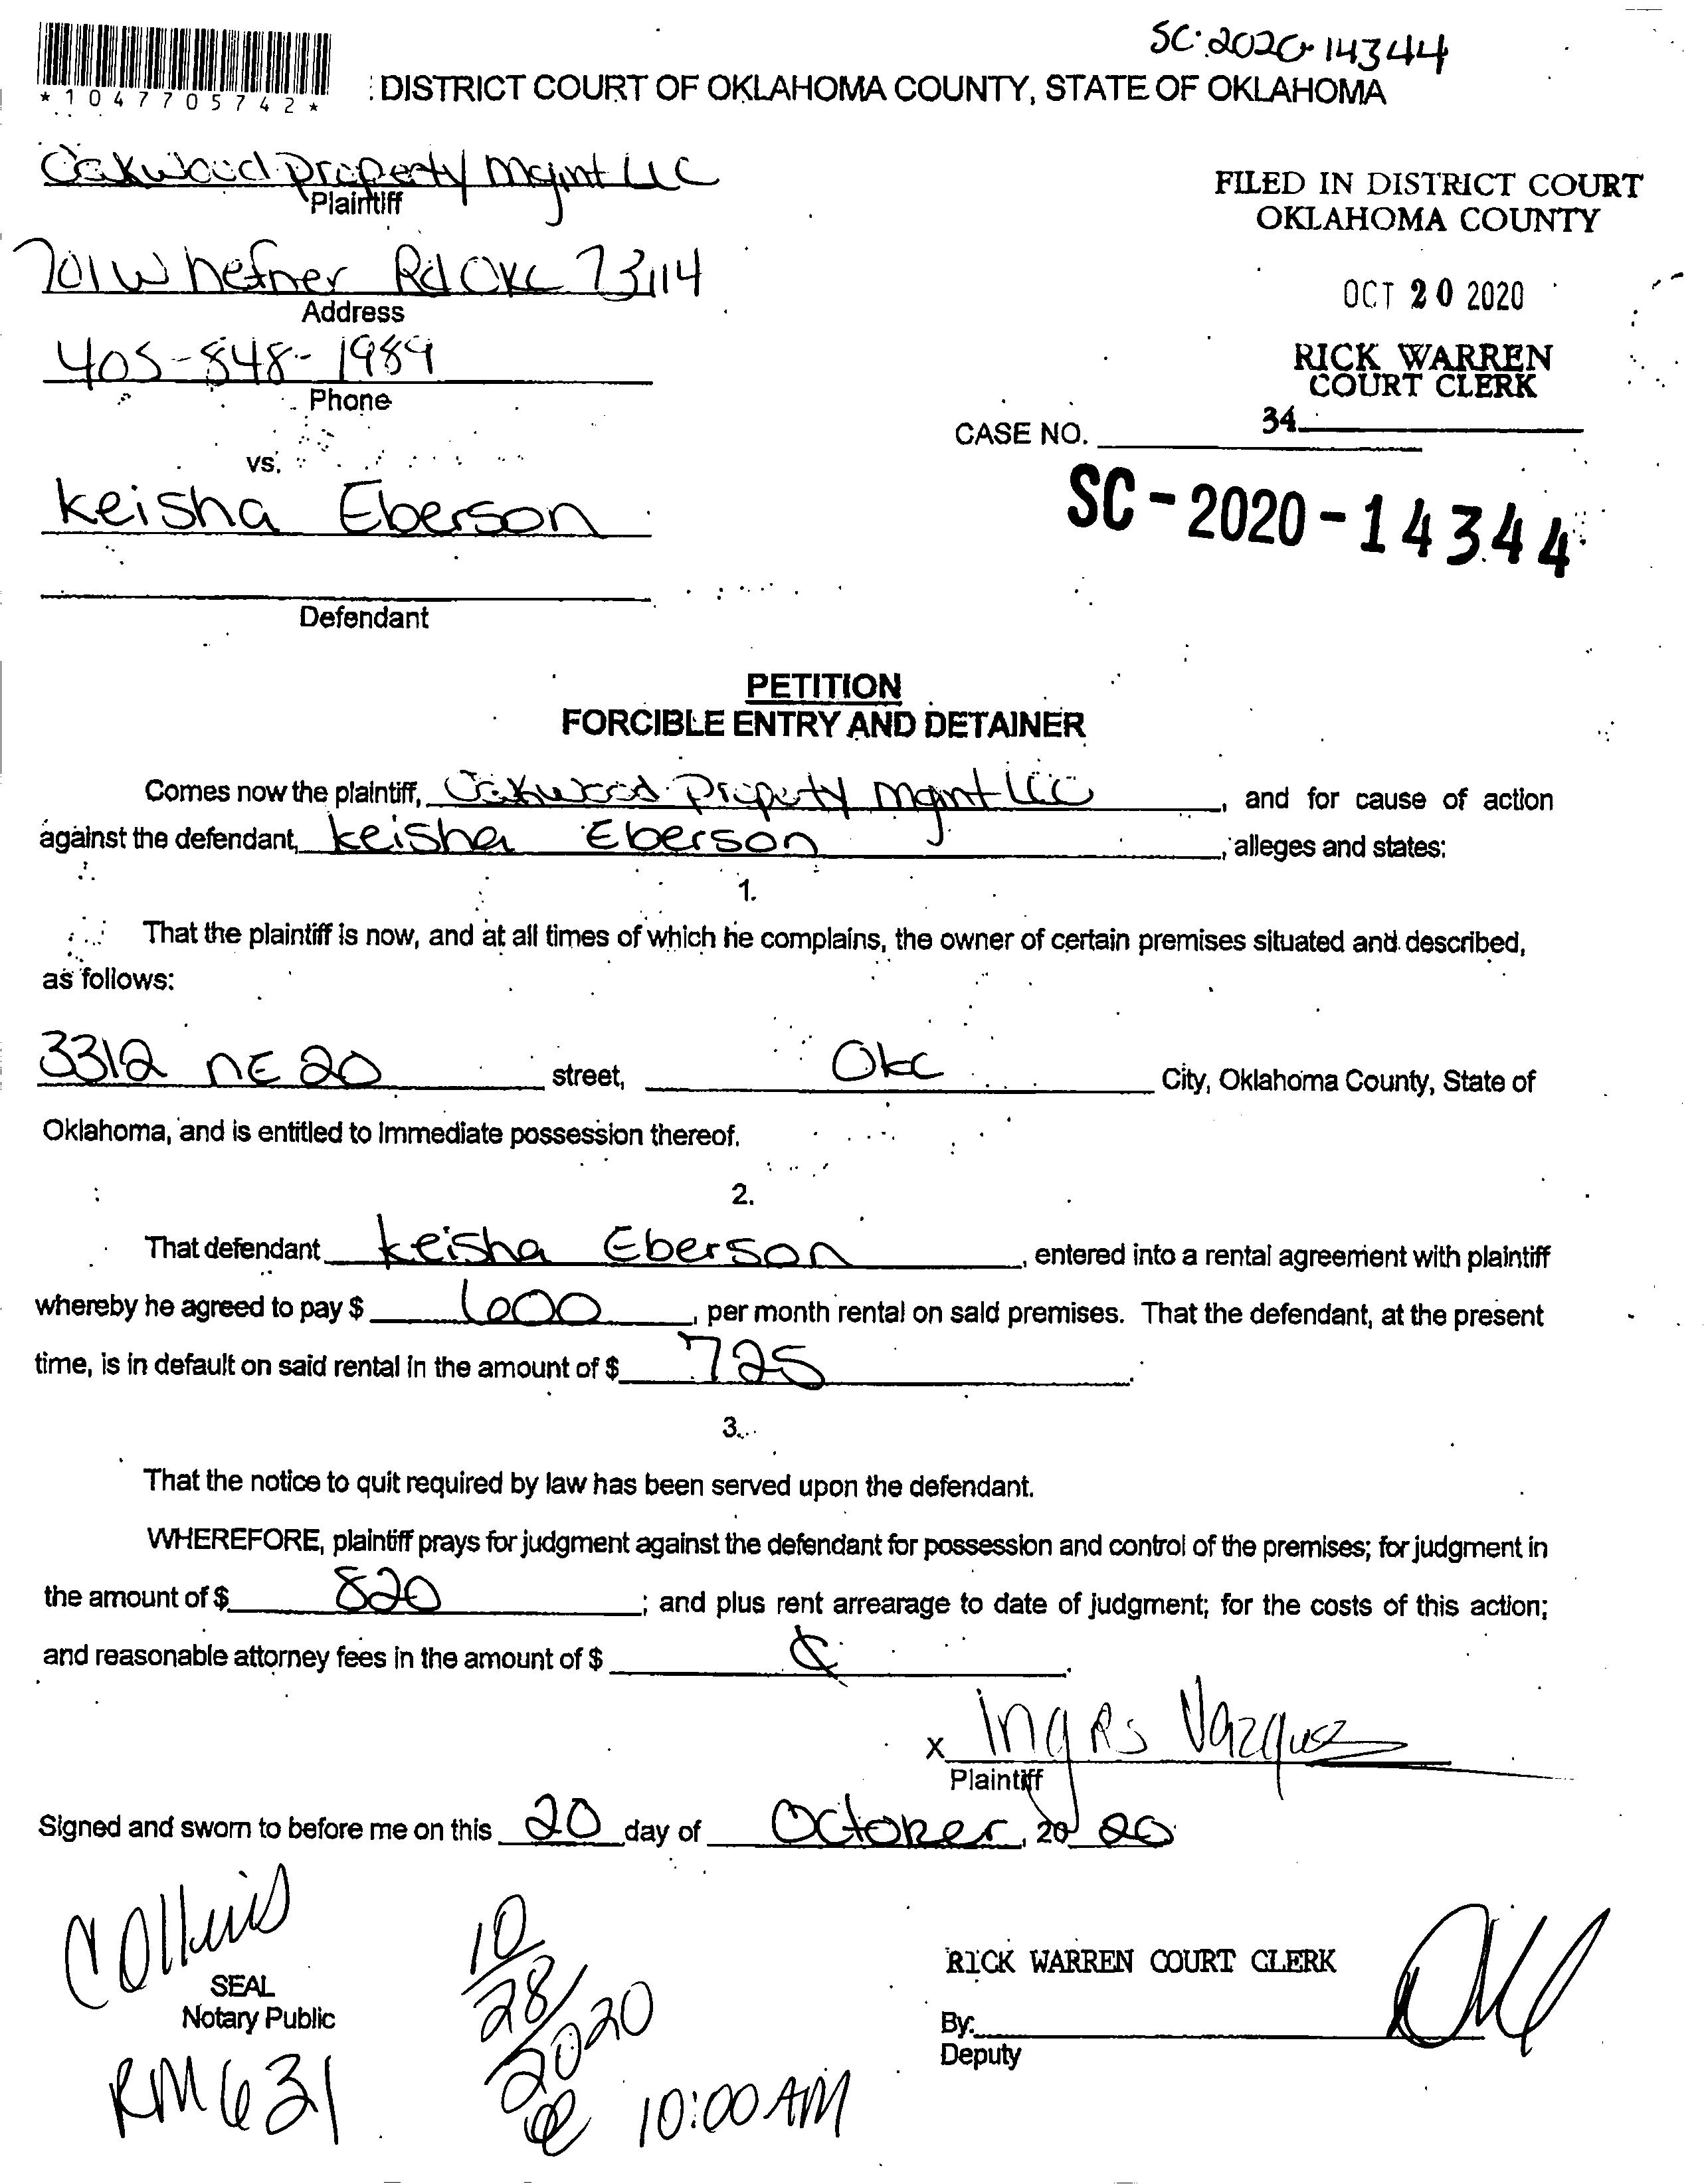 SC-2020-14344
*1047705742*
: DISTRICT COURT OF OKLAHOMA COUNTY, STATE OF OKLAHOMA
Oakwood Property Mgmt LLC
Plaintiff
FILED IN DISTRICT COURT
OKLAHOMA COUNTY
701 W hefner Rd OKC 73114
Address
OCT 20 2020
405-848-1989
Phone
RICK WARREN
COURT CLERK
34
CASE NO.
vs.
SC-2020-14344
keisha Eberson
Defendant
PETITION
FORCIBLE ENTRY AND DETAINER
Comes now the plaintiff, Oakwood Property Mgmt LLC, and for cause of action
against the defendant, keisha Eberson, alleges and states:
1.
That the plaintiff is now, and at all times of which he complains, the owner of certain premises situated and described,
as follows:
3312 NE 20 street, OKC City, Oklahoma County, State of
Oklahoma, and is entitled to immediate possession thereof.
2.
That defendant keisha Eberson, entered into a rental agreement with plaintiff
whereby he agreed to pay $ 600, per month rental on said premises. That the defendant, at the present
time, is in default on said rental in the amount of $ 725.
3.
That the notice to quit required by law has been served upon the defendant.
WHEREFORE, plaintiff prays for judgment against the defendant for possession and control of the premises; for judgment in
the amount of $ 820; and plus rent arrearage to date of judgment; for the costs of this action;
and reasonable attorney fees in the amount of $
x Vazquez
Plaintiff
Signed and sworn to before me on this 20 day of October, 20 20
Collins
SEAL
Notary Public
RM 631
10/28/2020
@ 10:00 AM
RICK WARREN COURT CLERK
By:
Deputy